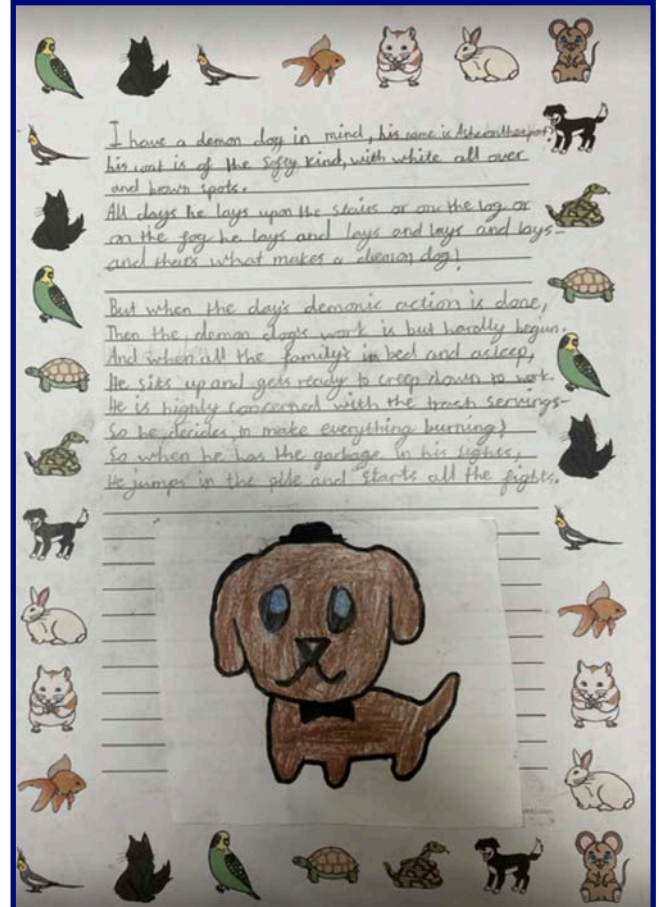 I have a demon dog in mind, his name is
his coat is of the softy kind, with white all over
and brown spots.
All days he lays upon the stairs or on the log or
on the fog he lays and lays and lays and lays-
and thats what makes a demon dog!
But when the day's demonic action is done,
Then the demon dog's work is but hardly begun.
And when all the family's in bed and asleep,
He sits up and gets ready to creep down to work.
He is highly concerned with the trash servings-
So he decides to make everything burning!
So when he has the garbage in his sights,
He jumps in the pile and starts all the fights.